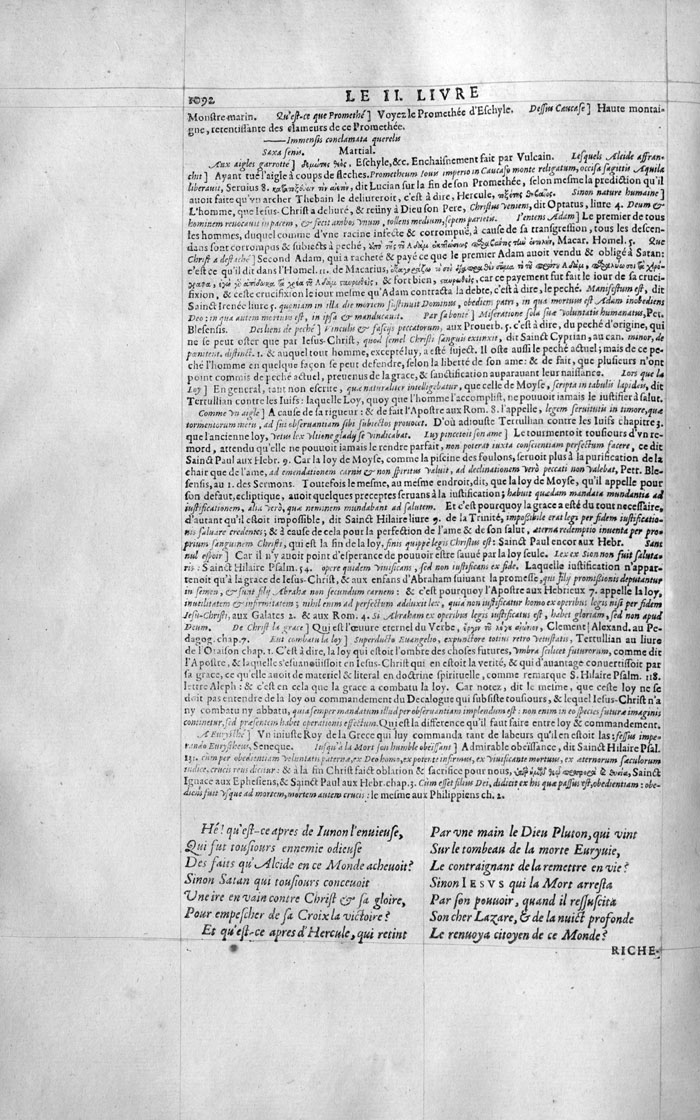 1092
LE II. LIVRE
Monstre marin. Qu'est-ce que Promethé] Voyez le Promethée d'Eschyle. Dessus Caucase] Haute montai-
gne, retentissante des clameurs de ce Promethée.
——Immensis conclamata querelis
Saxa senis. Martial.
Aux aigles garrotté] Eschyle, &c. Enchaisnement fait par Vulcain. Lesquels Alcide affran-
chit] Ayant tué l'aigle à coups de flesches. Prometheum Iouis imperio in Caucaso monte religatum, occisa sagittis Aquila
liberauit, Seruius 8. dit Lucian sur la fin de son Promethée, selon mesme la prediction qu'il
auoit faite qu'vn archer Thebain le deliureroit, c'est à dire, Hercule, Sinon nature humaine]
L'homme, que Iesus-Christ a deliuré, & reüny à Dieu son Pere, Christus veniens, dit Optatus, liure 4. Deum &
hominem reuocauit in pacem, & fecit ambos vnum, tollens medium sepem parietis. Piteniens Adam] Le premier de tous
les hommes, duquel comme d'vne racine infecte & corrompuë, à cause de sa transgression, tous les descen-
dans sont corrompus & subiects à peché, Macar. Homel. 5. Que
Christ a destaché] Second Adam, qui a racheté & payé ce que le premier Adam auoit vendu & obligé à Satan:
c'est ce qu'il dit dans l'Homel. 11. de Macarius,
& fort bien, car ce payement fut fait le iour de sa cruci-
fixion, & ceste crucifixion le iour mesme qu'Adam contracta la debte, c'est à dire, le peché. Manifestum est, dit
Sainct Irenée liure 5. quoniam in illa die mortem sustinuit Dominus, obediens patri, in qua mortuus est Adam inobediens
Deo: in qua autem mortuus est, in ipsa & manducauit. Par sa bonté] Miseratione sola suæ voluntatis humanatus, Pet.
Blesensis. Des liens de peché] Vinculis & fascijs peccatorum, aux Prouerb. 5. c'est à dire, du peché d'origine, qui
ne se peut oster que par Iesus-Christ, quod semel Christi sanguis extinxit, dit Sainct Cyprian, au can. minor, de
pœnitent. distinct. 1. & auquel tout homme, excepté luy, a esté suject. Il oste aussi le peché actuel; mais de ce pe-
ché l'homme en quelque façon se peut defendre, selon la liberté de son ame: & de fait, que plusieurs n'ont
point commis de peché actuel, preuenus de la grace, & sanctification auparauant leur naissance. Lors que la
Loy] En general, tant non escrite, quæ naturaliter intelligebatur, que celle de Moyse, scripta in tabulis lapideis, dit
Tertullian contre les Iuifs: laquelle Loy, quoy que l'homme l'accomplist, ne pouuoit iamais le iustifier à salut.
Comme vn aigle] A cause de sa rigueur: & de fait l'Apostre aux Rom. 8. l'appelle, legem seruitutis in timore, quæ
tormentorum metu, ad sui obseruantiam sibi subiectos prouocet. D'où adiouste Tertullian contre les Iuifs chapitre 3.
que l'ancienne loy, vetus lex vltione gladij se vindicabat. Luy pincetoit son ame] Le tourmentoit tousiours d'vn re-
mord, attendu qu'elle ne pouuoit iamais le rendre parfait, non poterat iuxta conscientiam perfectum facere, ce dit
Sainct Paul aux Hebr. 9. Car la loy de Moyse, comme la piscine des foulons, seruoit plus à la purification de la
chair que de l'ame, ad emendationem carnis & non spiritus valuit, ad declinationem verò peccati non valebat, Petr. Ble-
sensis, au 1. des Sermons. Toutefois le mesme, au mesme endroit, dit, que la loy de Moyse, qu'il appelle pour
son defaut, ecliptique, auoit quelques preceptes seruans à la iustification; habuit quædam mandata mundantia ad
iustificationem, alia verò, quæ neminem mundabant ad salutem. Et c'est pourquoy la grace a esté du tout necessaire,
d'autant qu'il estoit impossible, dit Sainct Hilaire liure 9. de la Trinité, impossibile erat legi per fidem iustificatio-
nis saluare credentes; & à cause de cela pour la perfection de l'ame & de son salut, æterna redemptio inuenta per pro-
prium sanguinem Christi, qui est la fin de la loy, finis quippe legis Christus est: Sainct Paul encor aux Hebr. Sans
nul espoir] Car il n'y auoit point d'esperance de pouuoit estre sauué par la loy seule. Lex ex Sion non fuit saluta-
ris: Sainct Hilaire Psalm. 54. opere quidem viuificans, sed non iustificans ex fide. Laquelle iustification n'appar-
tenoit qu'à la grace de Iesus-Christ, & aux enfans d'Abraham suiuant la promesse, qui filij promissionis deputantur
in semen, & sunt filij Abrahæ non secundum carnem: & c'est pourquoy l'Apostre aux Hebrieux 7. appelle la loy,
inutilitatem & infirmitatem; nihil enim ad perfectum adduxit lex, quia non iustificatur homo ex operibus legis nisi per fidem
Iesu-Christi, aux Galates 2. & aux Rom. 4. Si Abraham ex operibus legis iustificatus est, habet gloriam, sed non apud
Deum. De Christ la grace] Qui est l'œuure eternel du Verbe, Clement Alexand. au Pe-
dagog. chap. 7. Eut combatu la loy] Superducto Euangelio, expunctore totius retro vetustatis, Tertullian au liure
de l'Oraison chap. 1. C'est à dire, la loy qui estoit l'ombre des choses futures, vmbra scilicet futurorum, comme dit
l'Apostre, & laquelle s'esuanoüissoit en Iesus-Christ qui en estoit la verité, & qui d'auantage conuertissoit par
sa grace, ce qu'elle auoit de materiel & literal en doctrine spirituelle, comme remarque S. Hilaire Psalm. 118.
lettre Aleph: & c'est en cela que la grace a combatu la loy. Car notez, dit le mesme, que ceste loy ne se
doit pas entendre de la loy ou commandement du Decalogue qui subsiste tousiours, & lequel Iesus-Christ n'a
ny combatu ny abbatu, quia semper mandatum illud per obseruantiam implendum est: non enim in eo species futuræ imaginis
continetur, sed præsentem habet operationis effectum. Qui est la difference qu'il faut faire entre loy & commandement.
A Eurysthé] Vn iniuste Roy de la Grece qui luy commanda tant de labeurs qu'il en estoit las: fessus impe-
rando Eurystheus, Seneque. Iusqu'à la Mort son humble obeïssant] Admirable obeïssance, dit Sainct Hilaire Psal.
131. cum per obedientiam voluntatis paternæ, ex Deo homo, ex potente infirmus, ex viuificante mortuus, ex æternorum sæculorum
iudice, crucis reus dicitur: & à la fin Christ faict oblation & sacrifice pour nous, Sainct
Ignace aux Ephesiens, & Sainct Paul aux Hebr. chap. 5. Cùm esset filius Dei, didicit ex his quæ passus est, obedientiam: obe-
diens fuit vsque ad mortem, mortem autem crucis: le mesme aux Philippiens ch. 2.
Hé! qu'est-ce apres de Iunon l'enuieuse,
Qui fut tousiours ennemie odieuse
Des faits qu'Alcide en ce Monde acheuoit?
Sinon Satan qui tousiours conceuoit
Vne ire en vain contre Christ & sa gloire,
Pour empescher de sa Croix la victoire?
Et qu'est-ce apres d'Hercule, qui retint
Par vne main le Dieu Pluton, qui vint
Sur le tombeau de la morte Euryuie,
Le contraignant de la remettre en vie?
Sinon IESVS qui la Mort arresta
Par son pouuoir, quand il ressuscita
Son cher Lazare, & de la nuict profonde
Le renuoya citoyen de ce Monde?
RICHE